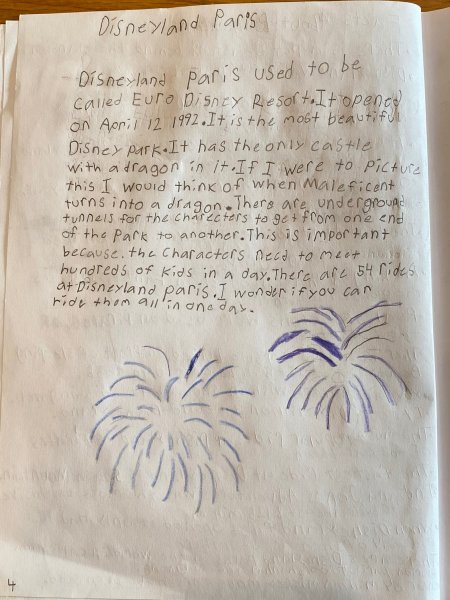 Disneyland Paris
Disneyland paris used to be
called Euro Disney Resort. It opened
on April 12 1992. It is the most beautiful
Disney park. It has the only castle
with a dragon in it. If I were to picture
this I would think of when Maleficent
turns into a dragon. There are underground
tunnels for the charecters to get from one end
of the Park to another. This is important
because. the characters need to meet
hundreds of kids in a day. There are 54 rides
at Disneyland paris. I wonder if you can
ride them all in one day.
4